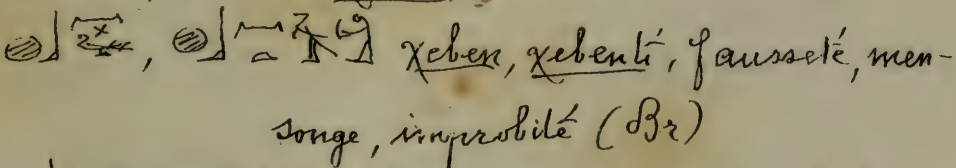 χeben, χebenti, fausseté, men-
songe, improbité (Br)